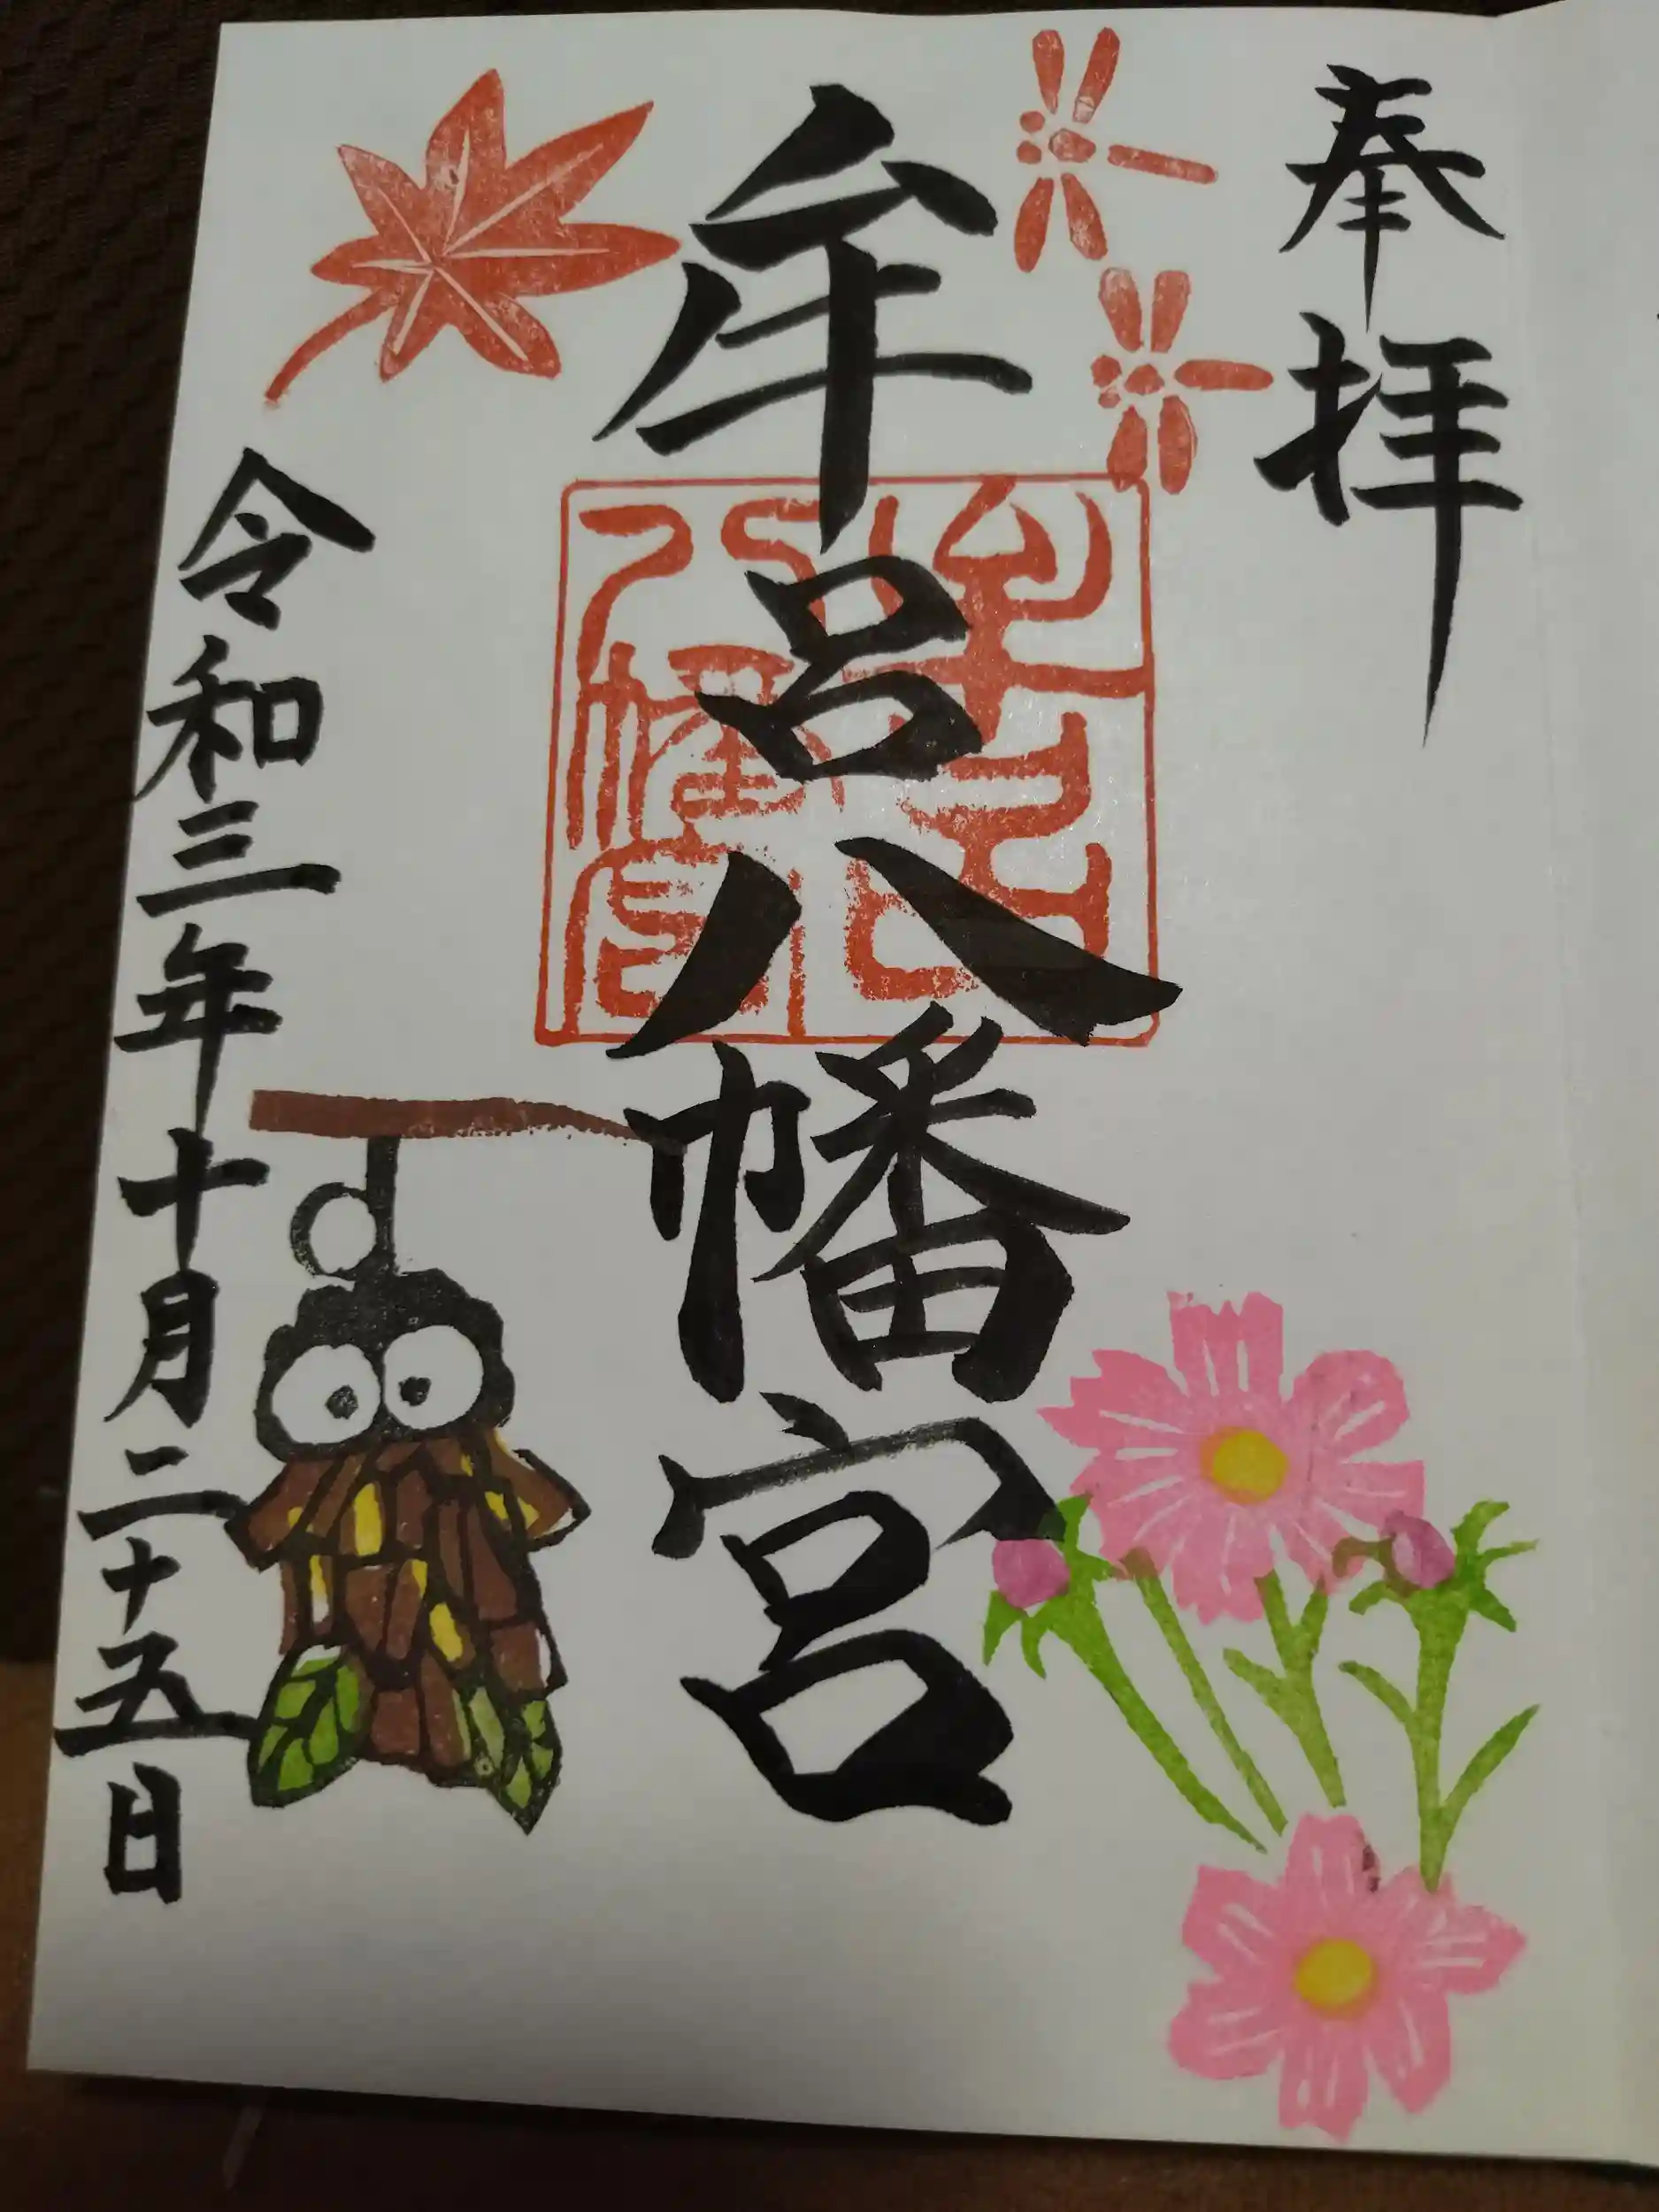 奉拝
牟呂八幡宮
牟呂八幡宮
令和三年十月二十五日